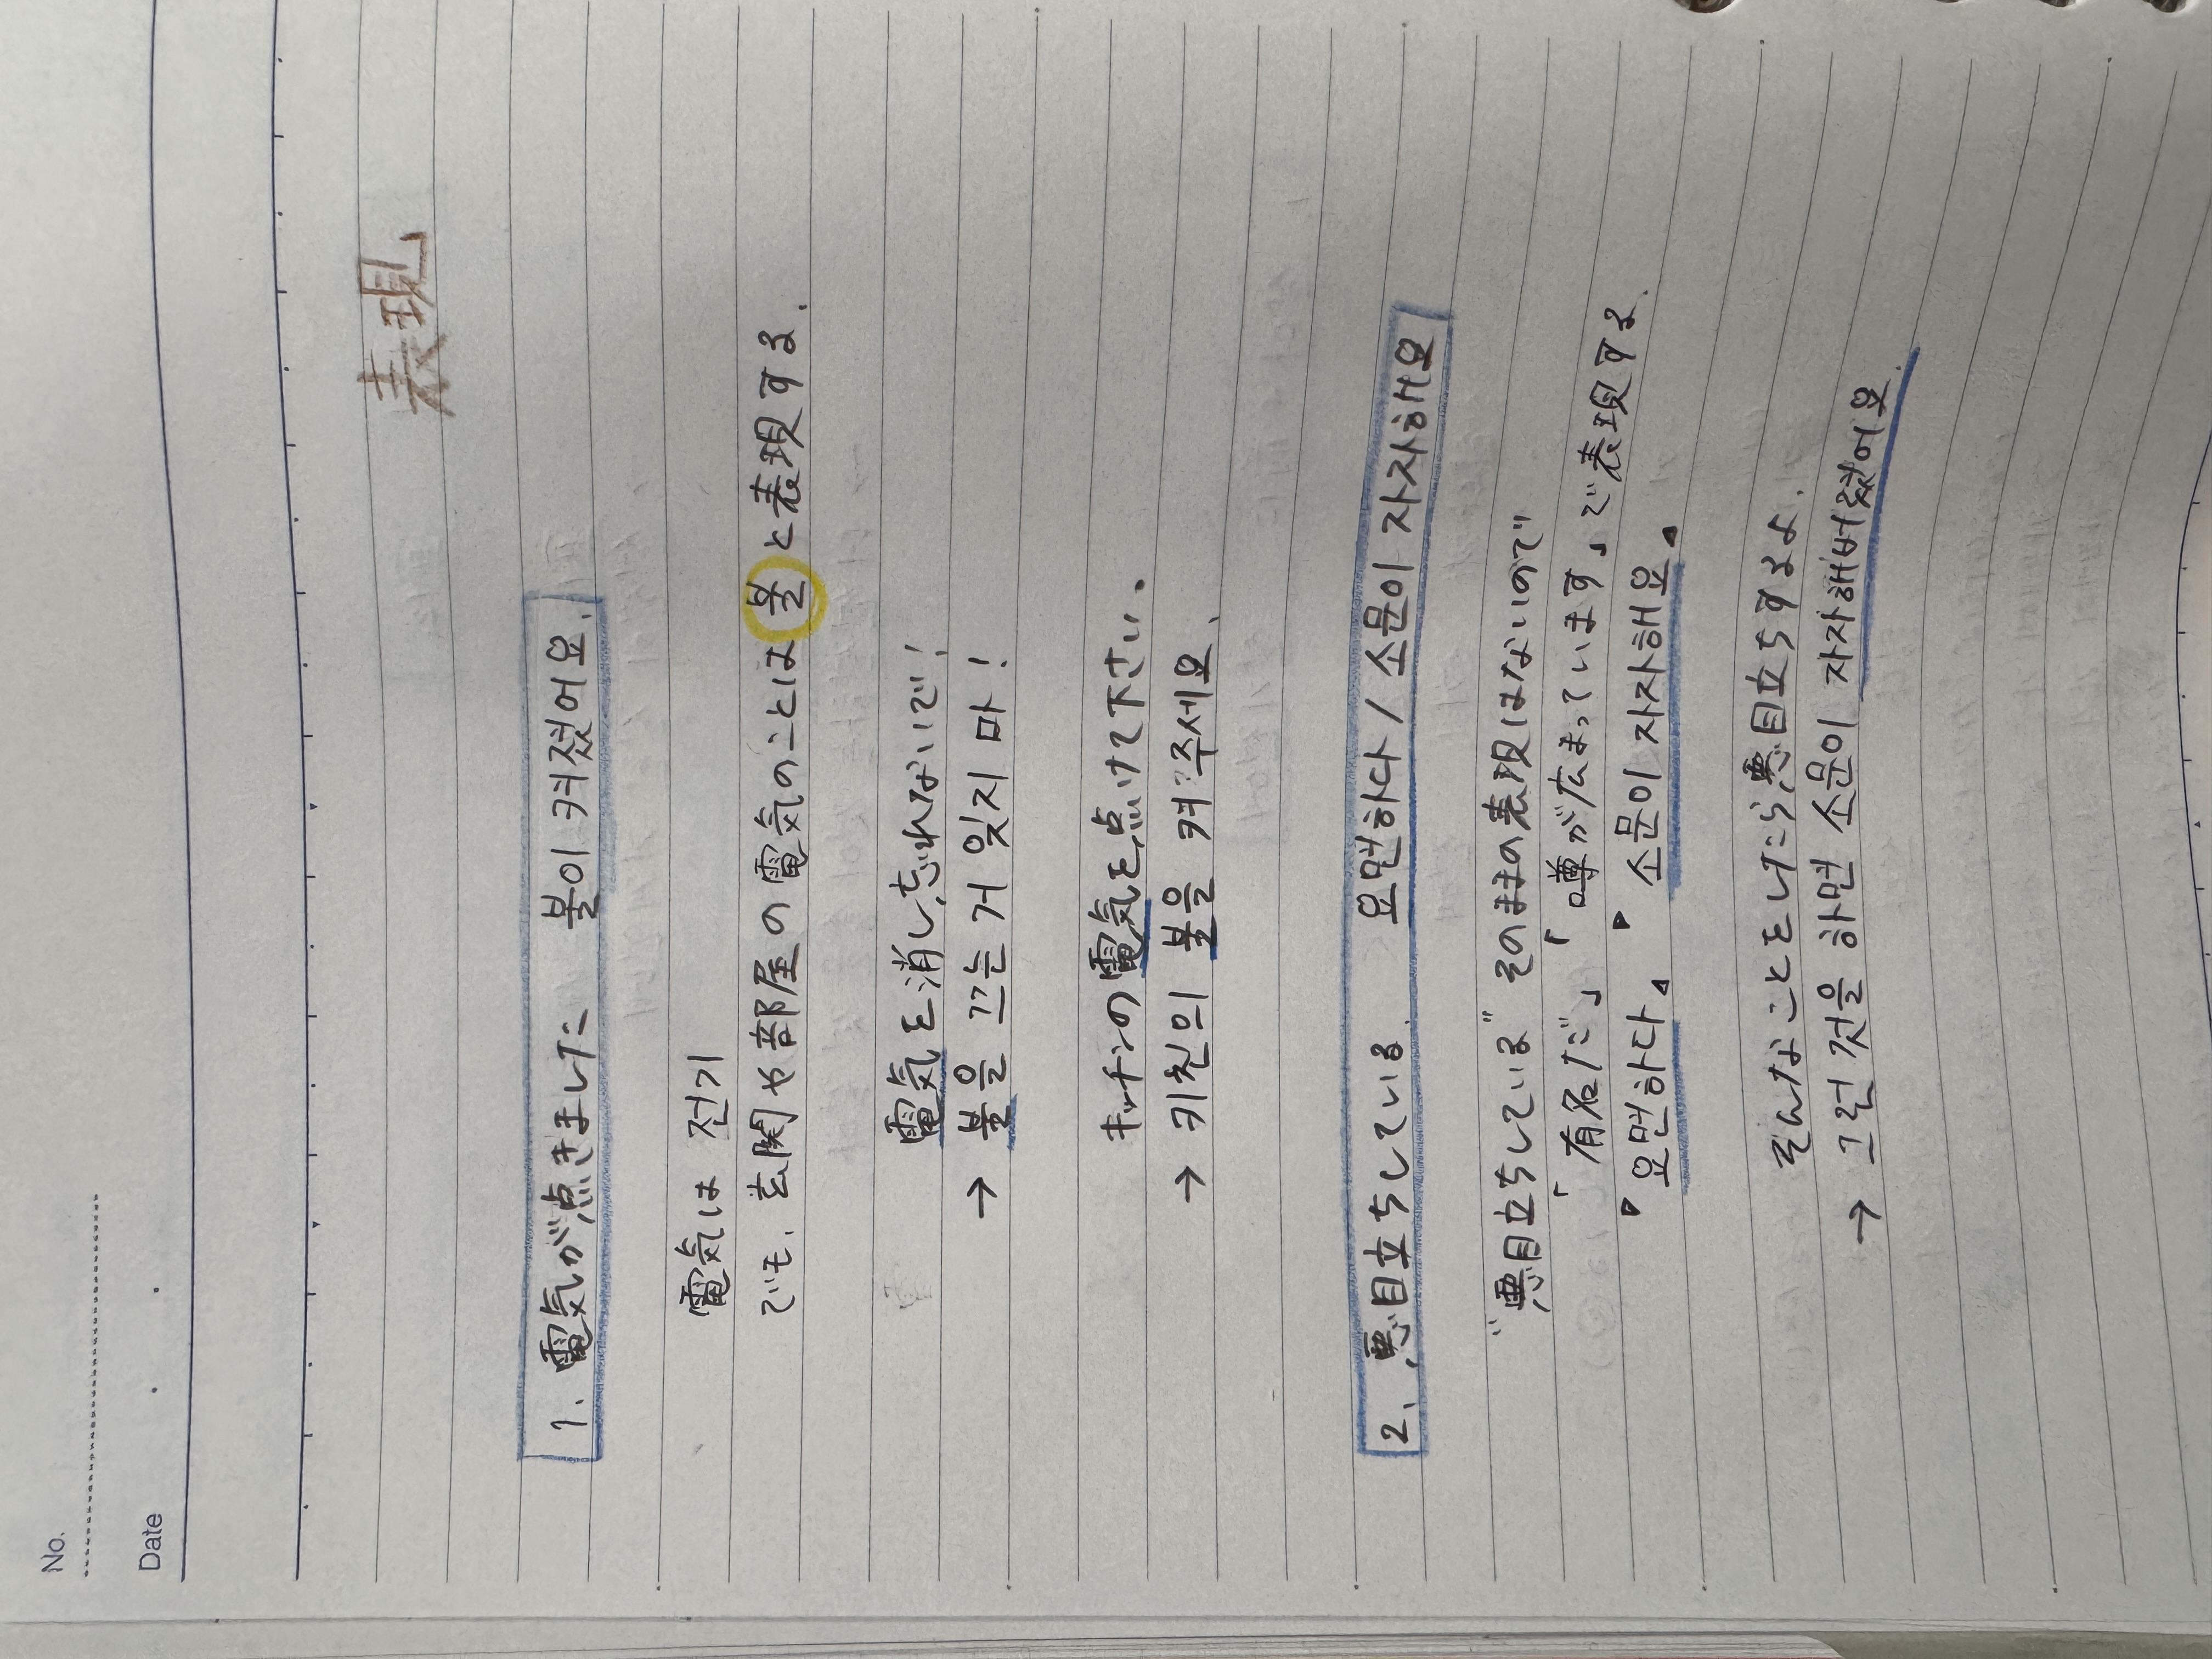 No.
Date
表現
1. 電気が点きました 불이 켜졌어요.
電気は 전기
でも、玄関や部屋の電気のことは 불 と表現する.
電気を消し忘れないで!
→ 불을 끄는 거 잊지 마!
キッチンの電気を点けて下さい.
→ 키친의 불을 켜 주세요.
2. 悪目立ちしている. 요면하다 / 소문이 자자해요
"悪目立ちしている" そのままの表現はないので"
「有名だ」「噂が広まっています」で表現する.
『요면하다』『소문이 자자해요』
そんなことをしたら悪目立ちするよ.
→ 그런 것을 하면 소문이 자자해버렸어요.